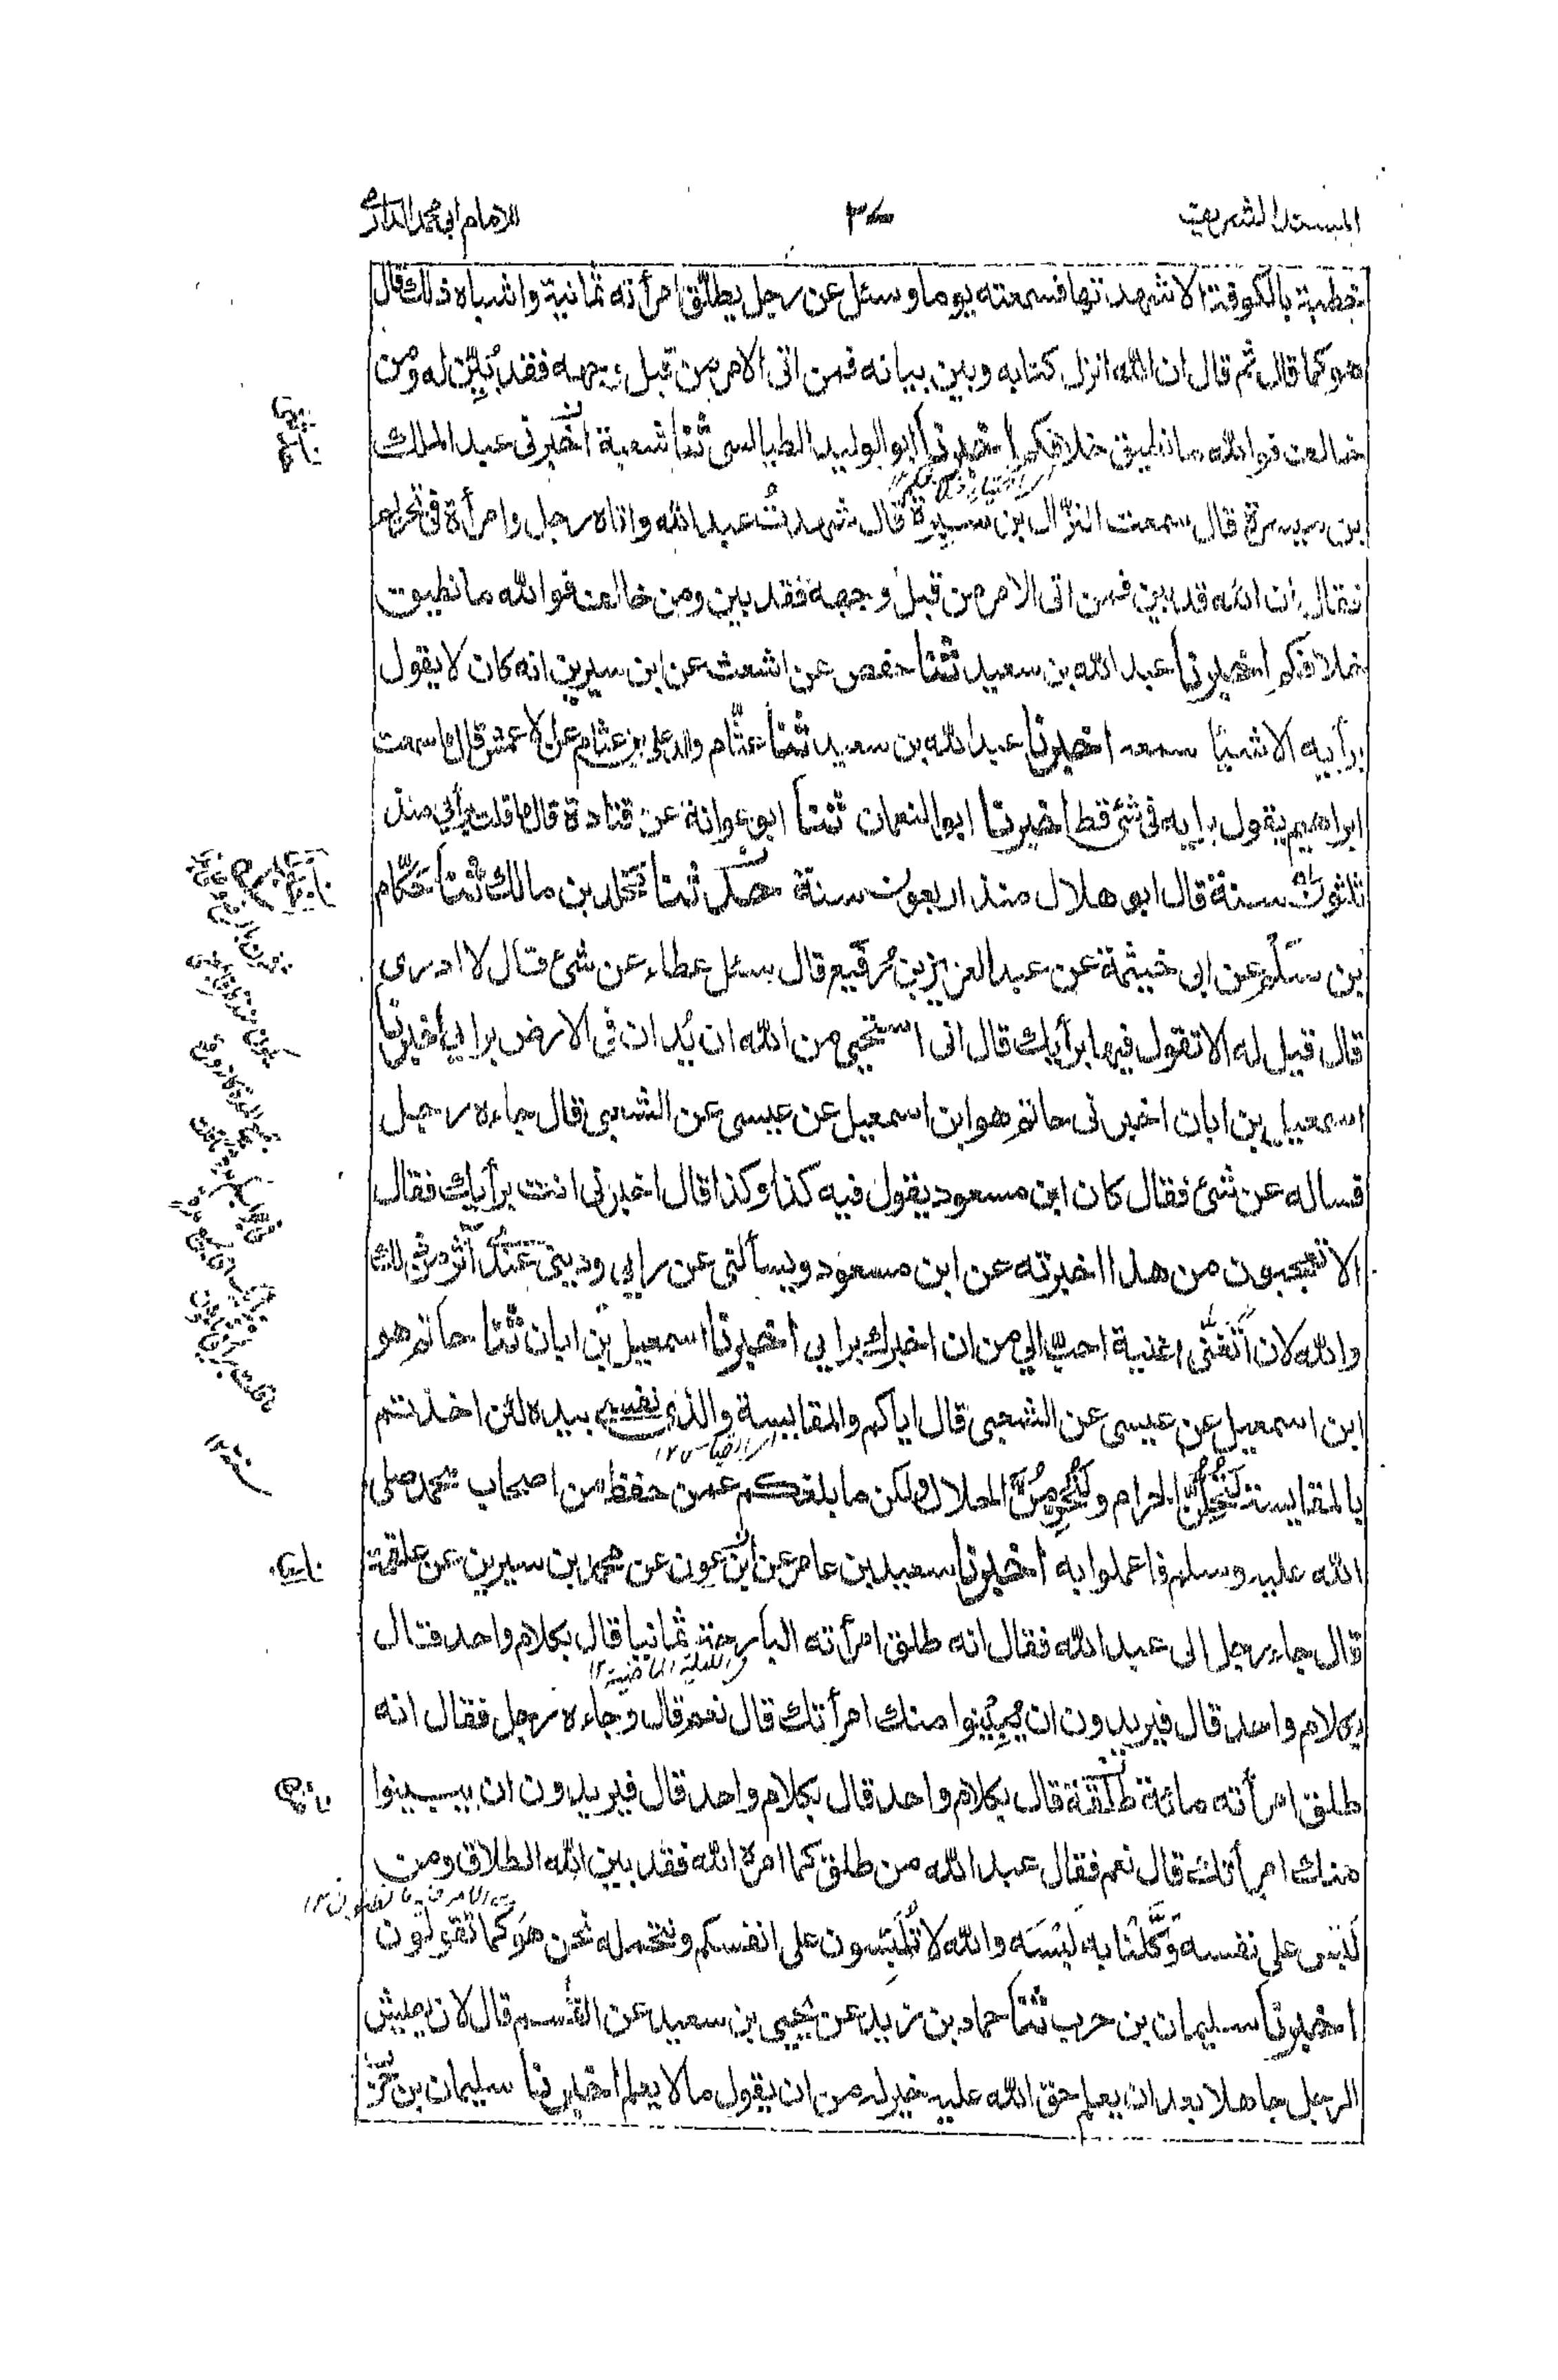 المسند الشريف
للامام ابي محمد الدارمي
خطبة بالكوفة الا شهدتها فسمعته يوما وسئل عن رجل يطلق امرأته ثمانية واشباه ذلك قال
هو كما قال ثم قال ان الله انزل كتابه وبين بيانه فمن اتى الامر من قبل وجهه فقد بُيِّن له ومن
خالف فوالله ما نطيق خلافكم اخبرنا ابو الوليد الطيالسي ثنا شعبة اخبرني عبد الملك
بن ميسرة قال سمعت النزّال بن سبرة قال شهدتُ عبد الله واتاه رجل وامرأة في تحريم
فقال ان الله قد بين فمن اتى الامر من قبل وجهه فقد بين ومن خالف فوالله ما نطيق
خلافكم اخبرنا عبد الله بن سعيد ثنا حفص عن اشعث عن ابن سيرين انه كان لا يقول
برأيه الا شيئا سمعه اخبرنا عبد الله بن سعيد ثنا عثّام والد علي بن عثام عن الاعمش قال ما سمعت
ابراهيم يقول برايه في شئ قط اخبرنا ابو النعمان ثنا ابو عوانة عن قتادة قال ما قلت برأيي منذ
ثلثون سنة قال ابو هلال منذ اربعون سنة ثنا مخلد بن مالك ثنا حَكّام
بن سَلْم عن ابي خيثمة عن عبد العزيز بن رُفَيع قال سئل عطاء عن شئ قال لا ادري
قال قيل له الا تقول فيها برأيك قال اني استحيي من الله ان يُدان في الارض برايي اخبرنا
اسمعيل بن ابان اخبرني حاتم هو ابن اسمعيل عن عيسى عن الشعبي قال جاءه رجل
فساله عن شئ فقال كان ابن مسعود يقول فيه كذا وكذا قال اخبرني انت برأيك فقال
الا تعجبون من هذا اخبرته عن ابن مسعود ويسألني عن رايي وديني عندي آثر من ذلك
والله لان أتَغَنّى اغنية احبّ الي من ان اخبرك برايي اخبرنا اسمعيل بن ابان ثنا حاتم هو
ابن اسمعيل عن عيسى عن الشعبي قال اياكم والمقايسة والذي نفسي بيده لئن اخذتم
بالمقايسة لتُحِلُّنّ الحرام ولتُحَرِّمُنّ الحلال ولكن ما بلغكم عمن حفظ من اصحاب محمد صلى
الله عليه وسلم فاعملوا به اخبرنا سعيد بن عامر عن ابن عون عن محمد بن سيرين عن علقمة
قال جاء رجل الى عبد الله فقال انه طلق امرأته البارحة ثمانيا قال بكلام واحد قال
والليلة الماضية ١٢
بكلام واحد قال فيريدون ان يُبِينوا منك امرأتك قال نعم قال وجاءه رجل فقال انه
طلق امرأته مائة طلقة قال بكلام واحد قال بكلام واحد قال فيريدون ان يبينوا
منك امرأتك قال نعم فقال عبد الله من طلق كما امره الله فقد بين الله الطلاق ومن
لَبّس على نفسه وَكَّلْنا به لَبْسَه والله لا تُلَبِّسون على انفسكم ونتحمله نحن هو كما تقولون
اخبرنا سليمان بن حرب ثنا حماد بن زيد عن يحيى بن سعيد عن القسم قال لان يعيش
الرجل جاهلا بعد ان يعلم حق الله عليه خير له من ان يقول ما لا يعلم اخبرنا سليمان بن حرب